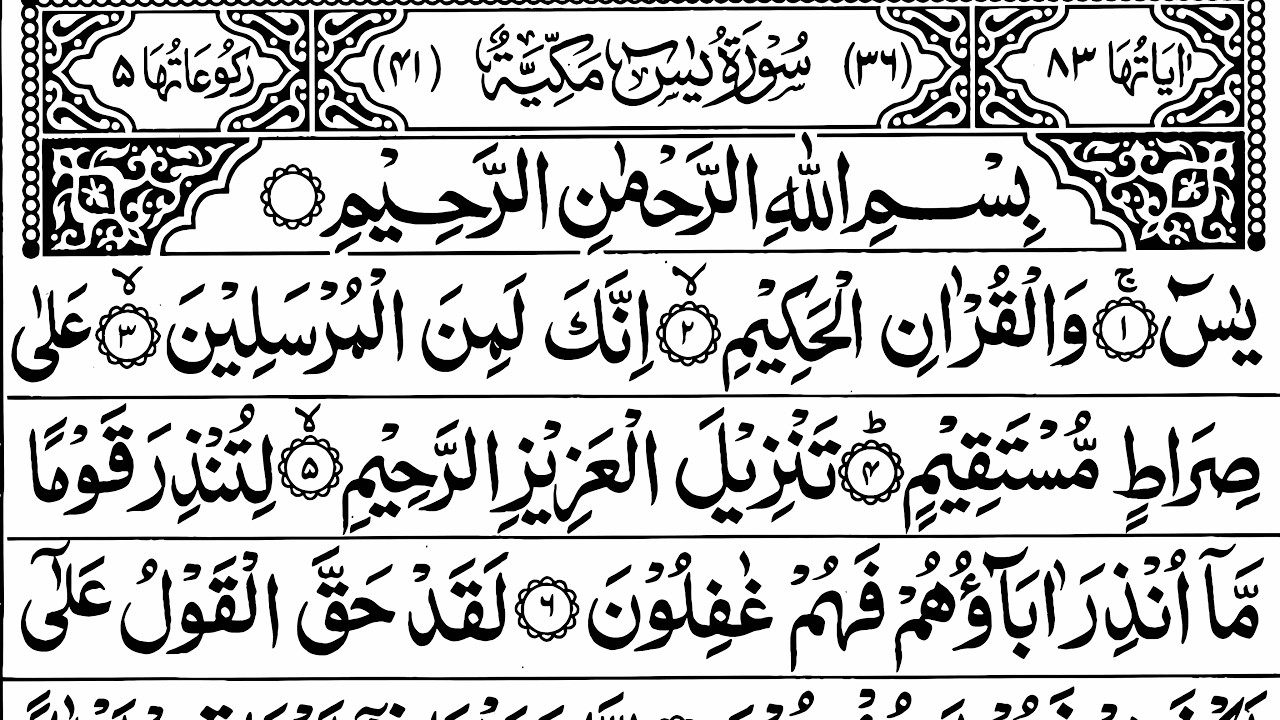 اٰيَاتُهَا ٨٣ (٣٦) سُوْرَةُ يٰسٓ مَكِّيَّةٌ (٤١) رُكُوْعَاتُهَا ۵
بِسْمِ اللّٰهِ الرَّحْمٰنِ الرَّحِيْمِ
يٰسٓ ۚ ﴿۱﴾ وَالْقُرْاٰنِ الْحَكِيْمِ ۙ ﴿۲﴾ اِنَّكَ لَمِنَ الْمُرْسَلِيْنَ ۙ ﴿۳﴾ عَلٰى
صِرَاطٍ مُّسْتَقِيْمٍ ؕ ﴿۴﴾ تَنْزِيْلَ الْعَزِيْزِ الرَّحِيْمِ ۙ ﴿۵﴾ لِتُنْذِرَ قَوْمًا
مَّاۤ اُنْذِرَ اٰبَآؤُهُمْ فَهُمْ غٰفِلُوْنَ ﴿۶﴾ لَقَدْ حَقَّ الْقَوْلُ عَلٰٓى